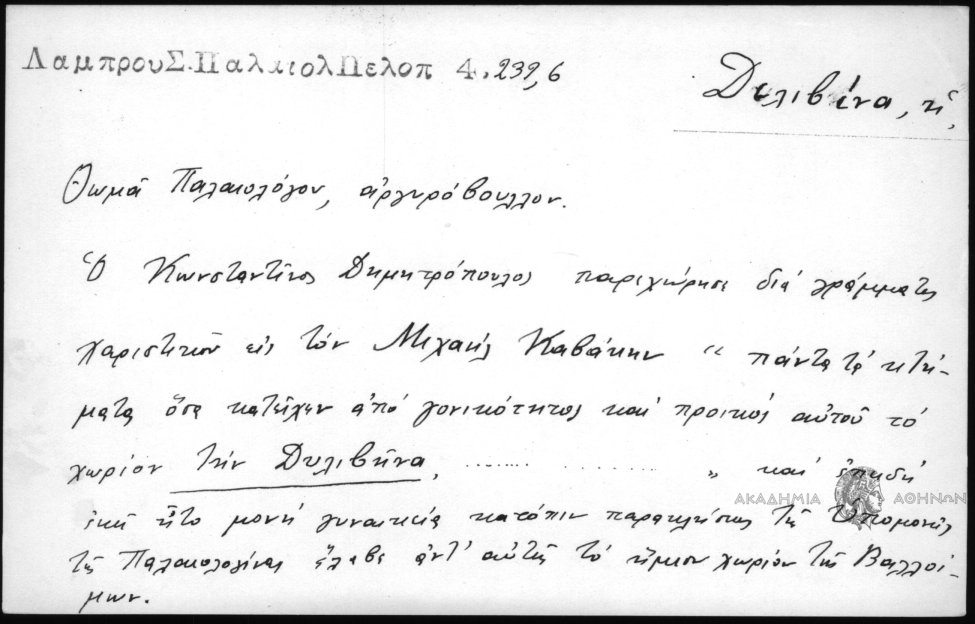 ΛαμπρουΣ.ΠαλαιολΠελοπ 4.239,6
Δυλιβίνα, ἡ,
Θωμᾶ Παλαιολόγου, ἀργυρόβουλλον.
Ὁ Κωνσταντῖνος Δημητρόπουλος παρεχώρησε διά γράμματος
χαριστικοῦ εἰς τόν Μιχαήλ Καβάκην " πάντα τά κτή-
ματα ὅσα κατεῖχεν ἀπό γονικότητος καί προικός αὐτοῦ τό
χωρίον τήν Δυλιβῆνα, ....... ....... " καί ἐπειδή
ἐκεῖ ἦτο μονή γυναικεία κατόπιν παρακλήσεως τῆς Ὑπομονῆς
τῆς Παλαιολογίνας ἔλαβε ἀντ' αὐτῆς τό ἥμισυ χωρίον τῆς Βαλλοί-
μων.
ΑΚΑΔΗΜΙΑ ΑΘΗΝΩΝ